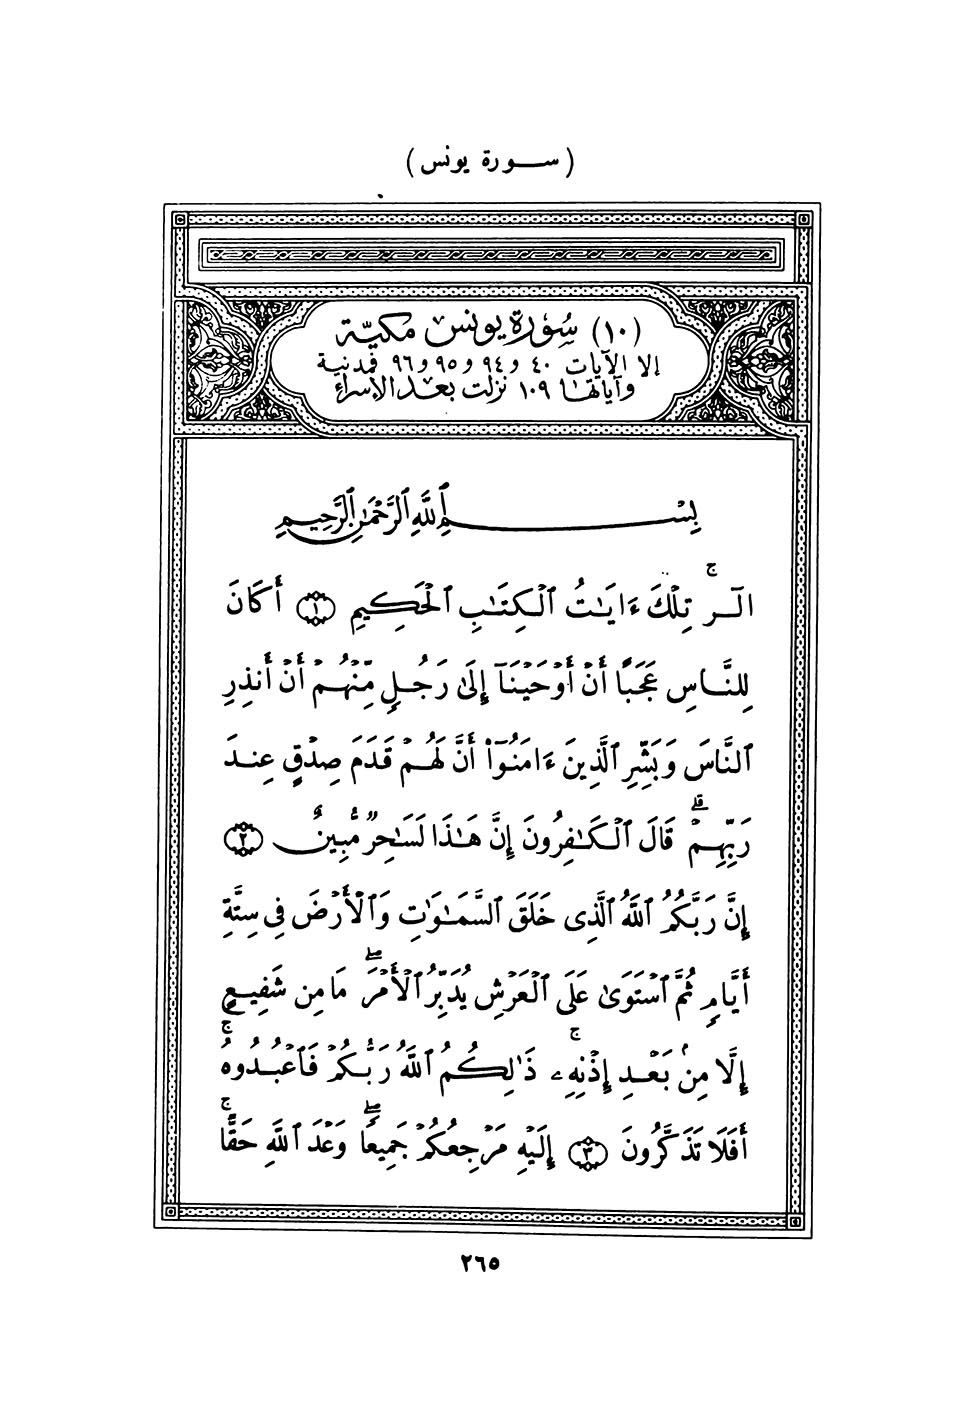 (سورة يونس)
(١٠) سُورَة يونس مكيّة
إلا الآيات ٤٠ و٩٤ و٩٥ و٩٦ فمدنية
وآياتها ١٠٩ نزلت بعد الإسراء
بِسْمِ ٱللَّهِ ٱلرَّحْمَـٰنِ ٱلرَّحِيمِ
الٓرۚ تِلْكَ ءَايَـٰتُ ٱلْكِتَـٰبِ ٱلْحَكِيمِ ﴿١﴾ أَكَانَ
لِلنَّاسِ عَجَبًا أَنْ أَوْحَيْنَآ إِلَىٰ رَجُلٍ مِّنْهُمْ أَنْ أَنذِرِ
ٱلنَّاسَ وَبَشِّرِ ٱلَّذِينَ ءَامَنُوٓا۟ أَنَّ لَهُمْ قَدَمَ صِدْقٍ عِندَ
رَبِّهِمْۗ قَالَ ٱلْكَـٰفِرُونَ إِنَّ هَـٰذَا لَسَـٰحِرٌ مُّبِينٌ ﴿٢﴾
إِنَّ رَبَّكُمُ ٱللَّهُ ٱلَّذِى خَلَقَ ٱلسَّمَـٰوَٰتِ وَٱلْأَرْضَ فِى سِتَّةِ
أَيَّامٍ ثُمَّ ٱسْتَوَىٰ عَلَى ٱلْعَرْشِ يُدَبِّرُ ٱلْأَمْرَۖ مَا مِن شَفِيعٍ
إِلَّا مِنۢ بَعْدِ إِذْنِهِۦۚ ذَٰلِكُمُ ٱللَّهُ رَبُّكُمْ فَٱعْبُدُوهُۚ
أَفَلَا تَذَكَّرُونَ ﴿٣﴾ إِلَيْهِ مَرْجِعُكُمْ جَمِيعًاۖ وَعْدَ ٱللَّهِ حَقًّاۚ
٢٦٥